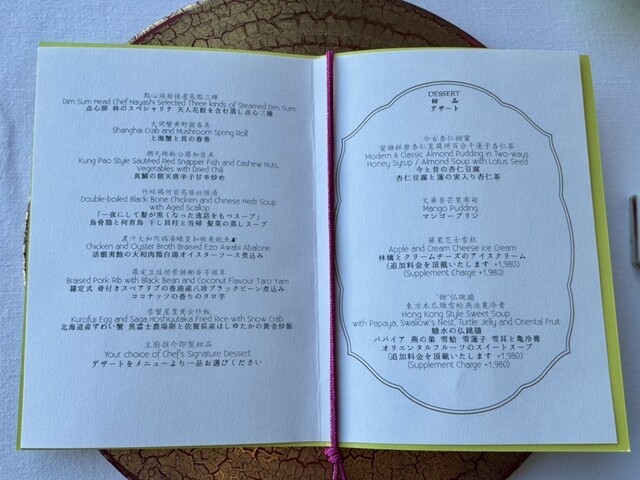 點心城廚精選蒸點三輝
Dim Sum Head Chef Hayashi Selected Three kinds of Steamed Dim Sum
点心師 林のスペシャリテ 天人花餃を含む蒸し点心三種
大閘蟹黄野菌春卷
Shanghai Crab and Mushroom Spring Roll
上海蟹と茸の春巻
朝天辣椒公爆加吉魚
Kung Pao Style Sautéed Red Snapper Fish and Cashew Nuts,
Vegetables with Dried Chili
真鯛の朝天唐辛子甘辛炒め
竹絲鶏何首烏瑤柱燉湯
Double-boiled Black Bone Chicken and Chinese Herb Soup
with Aged Scallop
「一夜にして髪が黒くなった逸話をもつスープ」
烏骨鶏と何首烏 干し貝柱と当帰 髪菜の蒸しスープ
Chicken and Oyster Broth Braised Ezo Awabi Abalone
活蝦夷鮑の大和肉鶏白湯オイスターソース煮込み
Braised Pork Rib with Black Bean and Coconut Flavour Taro Yam
羅定式 骨付きスペアリブの香港産八珍ブラックビーン煮込み
ココナッツの香りのタロ芋
雪蟹星冀黄金炒飯
Kurofuji Egg and Saga Hoshiyutaka Fried Rice with Snow Crab
北海道産ずわい蟹 黒富士農場卵と佐賀県産ほしゆたかの黄金炒飯
主廚推介即製甜品
Your choice of Chef's Signature Dessert
デザートをメニューより一品お選びください
DESSERT
甜 品
デザート
今古杏仁甜蜜
蜜糖鮮磨杏仁豆腐 百合十蓮子杏仁茶
Modern & Classic Almond Pudding in Two-ways
Honey Syrup / Almond Soup with Lotus Seed
今と昔の杏仁豆腐
杏仁豆腐と蓮の実入り杏仁茶
Mango Pudding
マンゴープリン
蘋果芝士雪糕
Apple and Cream Cheese Ice Cream
林檎とクリームチーズのアイスクリーム
(追加料金を頂戴いたします +1,980)
(Supplement Charge +1,980)
"甜"仏跳牆
Hong Kong Style Sweet Soup
with Papaya, Swallow's Nest, Turtle Jelly and Oriental Fruit
糖水の仏跳牆
パパイア 燕の巣 雪蛤 雪蓮子 雪耳と亀冷膏
オリエンタルフルーツのスイートスープ
(追加料金を頂戴いたします +1,980)
(Supplement Charge +1,980)